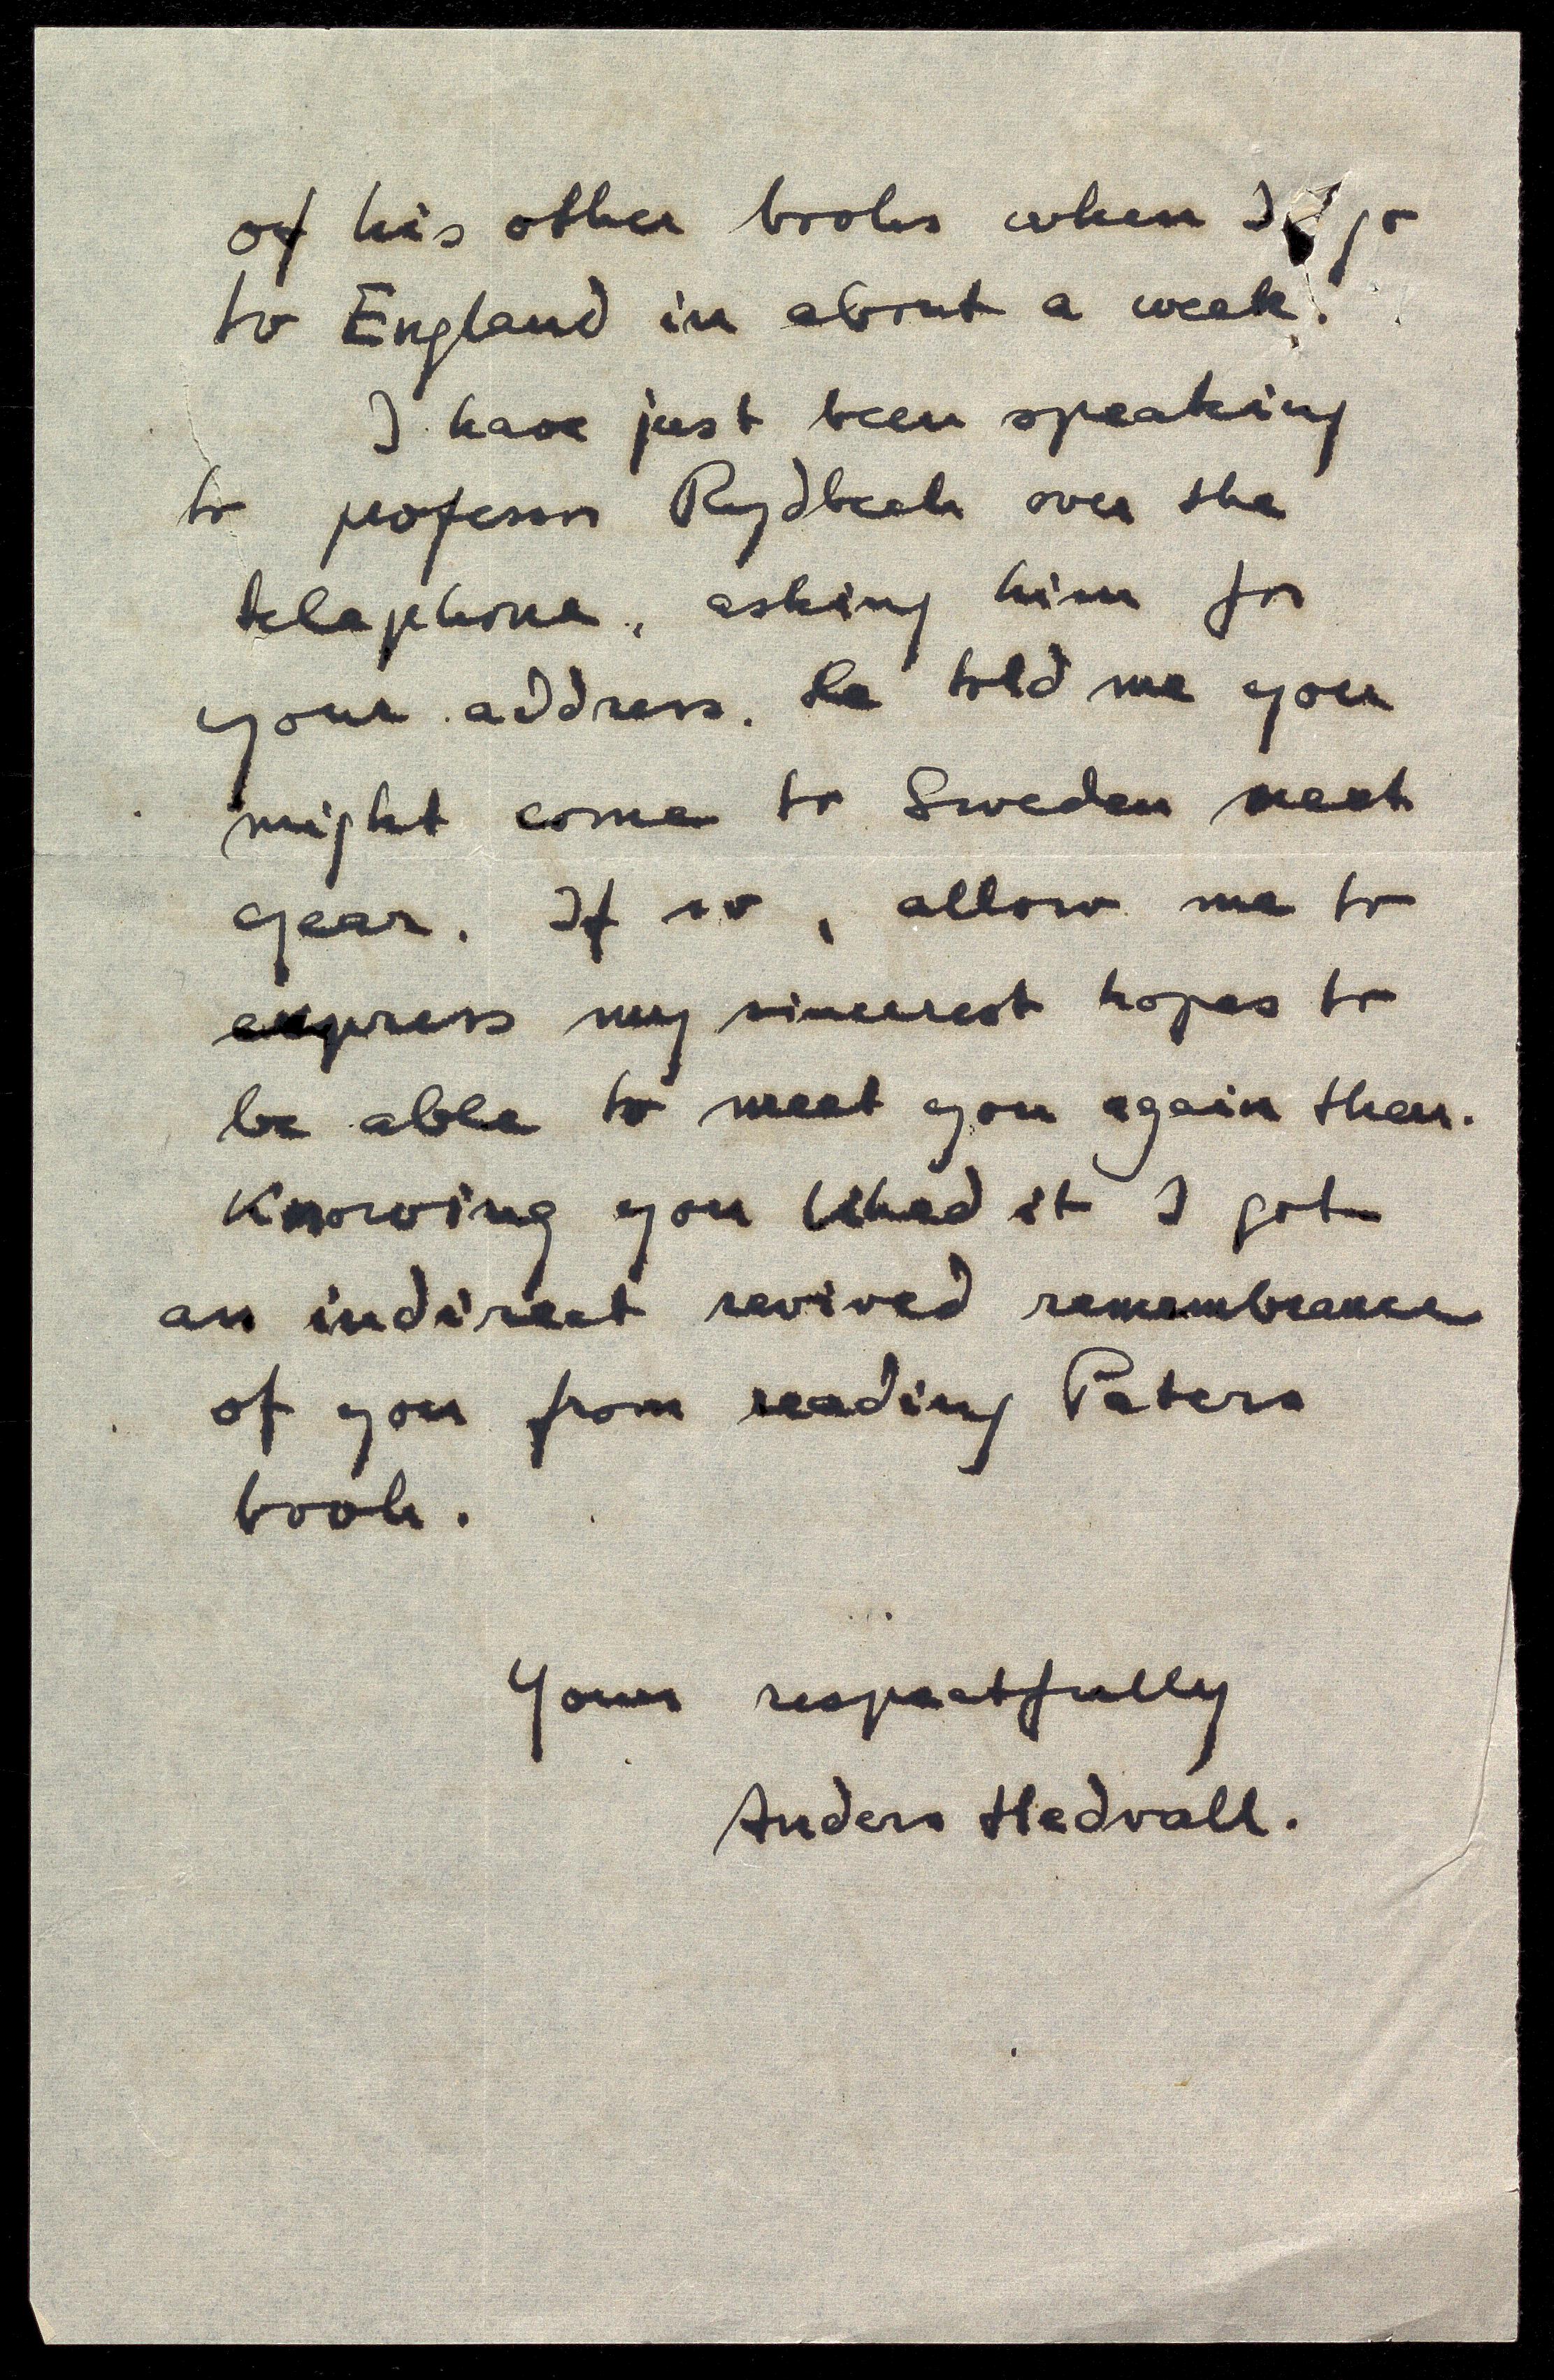 of his other books when I go
to England in about a week.
I have just been speaking
to professor Rydbeck over the
telephone, asking him for
your address. He told me you
might come to Sweden next
year. If so, allow me to
express my sincerest hopes to
be able to meet you again then.
Knowing you liked it I got
an indirect revived remembrance
of you from reading Paters
book.
Yours respectfully
Anders Hedvall.